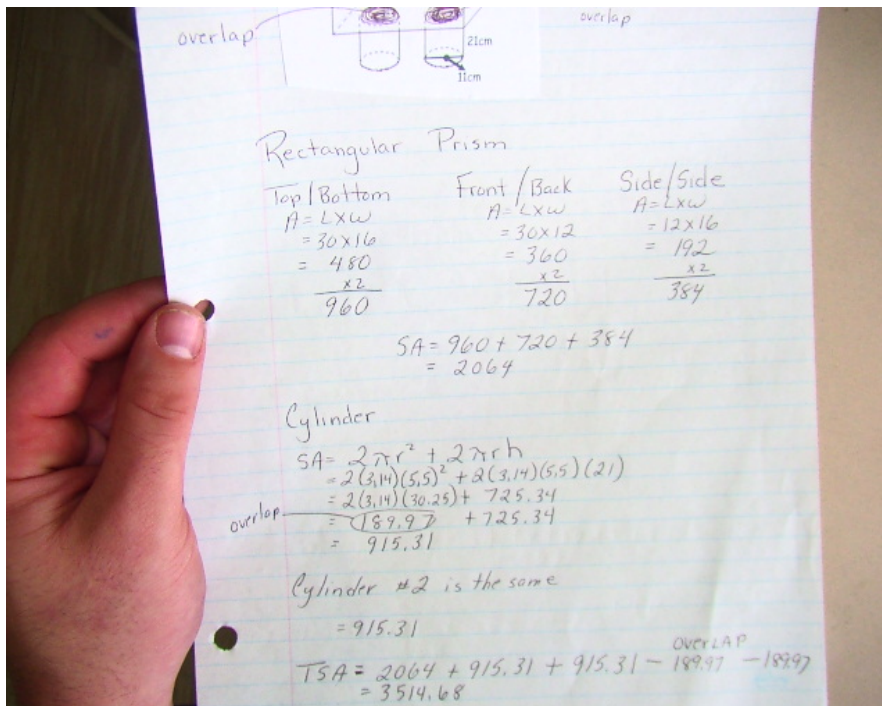 overlap
overlap
21cm
11cm
Rectangular Prism
Top/Bottom Front/Back Side/Side
A=LXW A=LXW A=LXW
=30X16 =30X12 =12X16
= 480 = 360 = 192
x2 x2 x2
960 720 384
SA = 960 + 720 + 384
= 2064
Cylinder
SA= 2πr² + 2πrh
= 2(3,14)(5,5)² + 2(3,14)(5,5)(21)
= 2(3,14)(30.25)+ 725.34
overlap = 189.97 +725.34
= 915.31
Cylinder #2 is the same
= 915.31
OVERLAP
TSA = 2064 + 915.31 + 915.31 - 189.97 - 189.97
= 3514.68